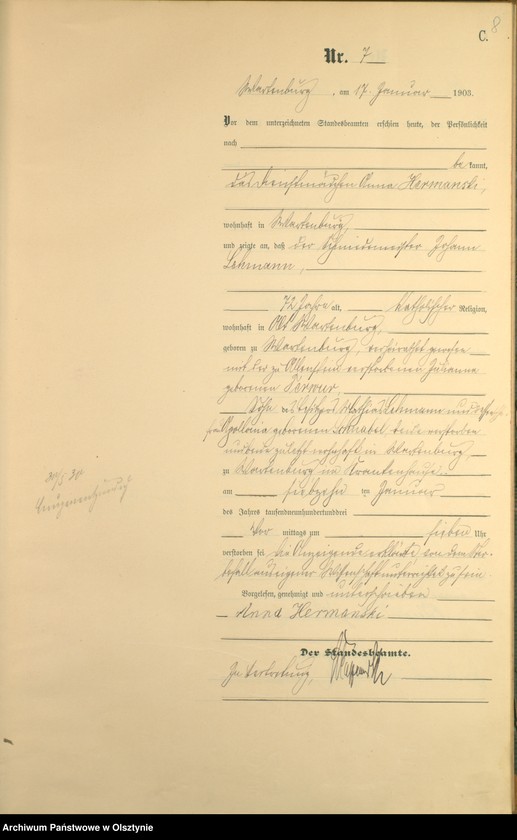 C. 8
Nr. 7
Wartenburg, am 17. Januar 1903.
Vor dem unterzeichneten Standesbeamten erschien heute, der Persönlichkeit
nach
be kannt,
das Anna Hermanski,
wohnhaft in Wartenburg,
und zeigte an, daß der Schmiedemeister Johann
Lehmann,
72 Jahre alt, katholischer Religion,
wohnhaft in Alt Wartenburg,
geboren zu Wartenburg, verheirathet gewesen
mit der zu Allenstein verstorbenen Julianna
geborenen
Sohn des Besitzers Mathias Lehmann und
geborenen Schnabel, beide verstorben
und zuletzt wohnhaft in Wartenburg
zu Wartenburg im Krankenhause
am siebzehn ten Januar
des Jahres tausendneunhundertunddrei
Vor mittags um sieben Uhr
verstorben sei. Die Anzeigende erklärte, von dem Ster-
befall aus eigener Wissenschaft unterrichtet zu sein.
Vorgelesen, genehmigt und unterschrieben
Anna Hermanski
Der Standesbeamte.
In Vertretung,
Archiwum Państwowe w Olsztynie